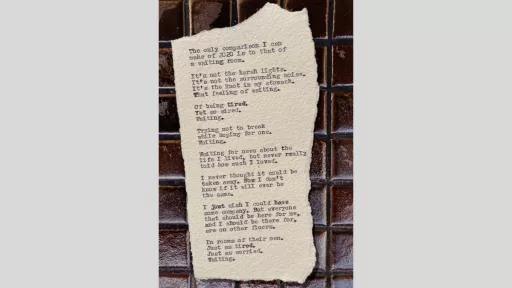 The only comparison I can
make of 2020 is to that of
a waiting room.
It's not the harsh lights.
It's not the surrounding noise.
It's the knot in my stomach.
That feeling of waiting.
Of being tired.
Yet so wired.
Waiting.
Trying not to break
while hoping for one.
Waiting.
Waiting for news about the
life I lived, but never really
told how much I loved.
I never thought it could be
taken away. Now I don't
know if it will ever be
the same.
I just wish I could have
some company. But everyone
that should be here for me,
and I should be there for,
are on other floors.
In rooms of their own.
Just as tired.
Just as worried.
Waiting.